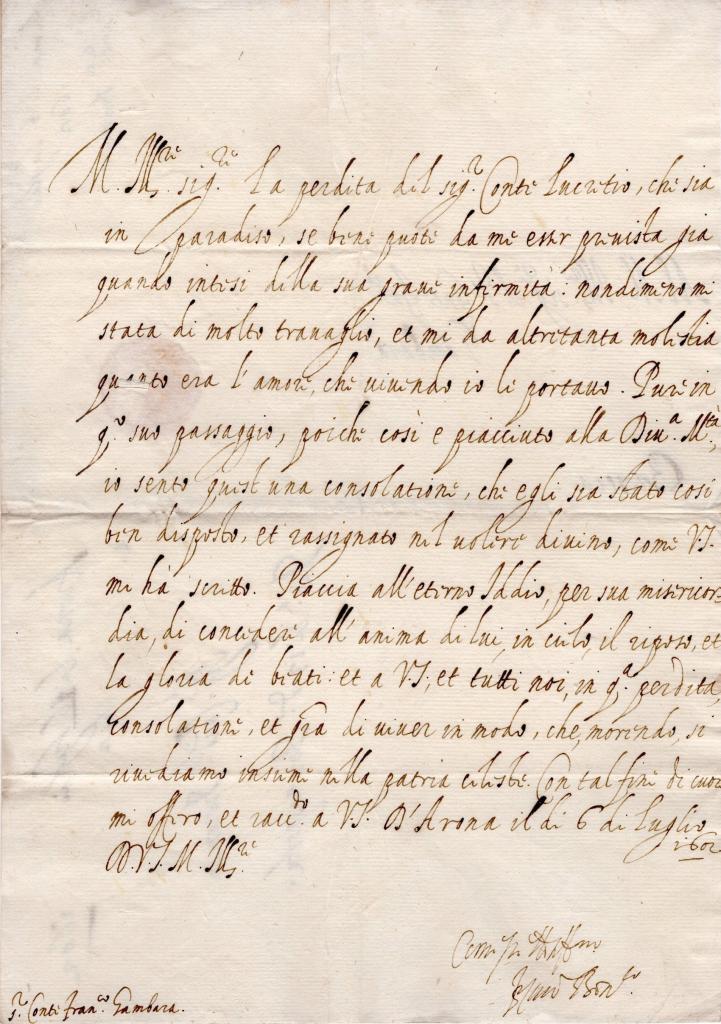 M. Ill.re sig.re La perdita del sig.r Conte Lucretio, che sia
in paradiso, se bene puote da me esser prevista già
quando intesi della sua grave infirmità: nondimeno m'è
stata di molto travaglio, et mi da altretanta molestia
quanto era l'amore, che vivendo io le portavo. Pure in
q.o suo passaggio, poiche così e piacciuto alla Div.a M.tà,
io sento quest'una consolatione, che egli sia stato così
ben disposto, et rassignato nel volere divino, come V.S.
mi hà scritto. Piaccia all'eterno Iddio, per sua misericor=
dia, di concedere all'anima di lui, in cielo, il riposo, et
la gloria de beati: et a V.S., et tutti noi, in q.a perdita,
consolatione, et grã di viver in modo, che, morendo, si
rivediamo insieme nella patria celeste. Con tal fine di cuore
mi offero, et racc.do a V.S. D'Arona il di 6 di Luglio
1602
D.V.S. M. Ill.re
Bon.eo
s.r Conte Fran.co Gambara.